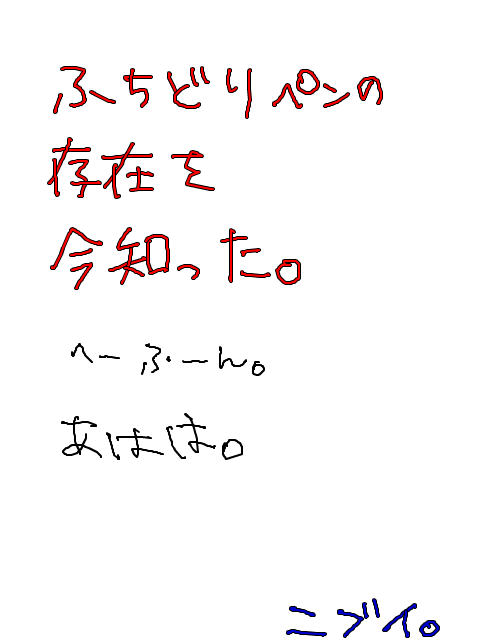 ふちどりペンの
存在を
今知った。
へーふーん。
あはは。
ニブイ。